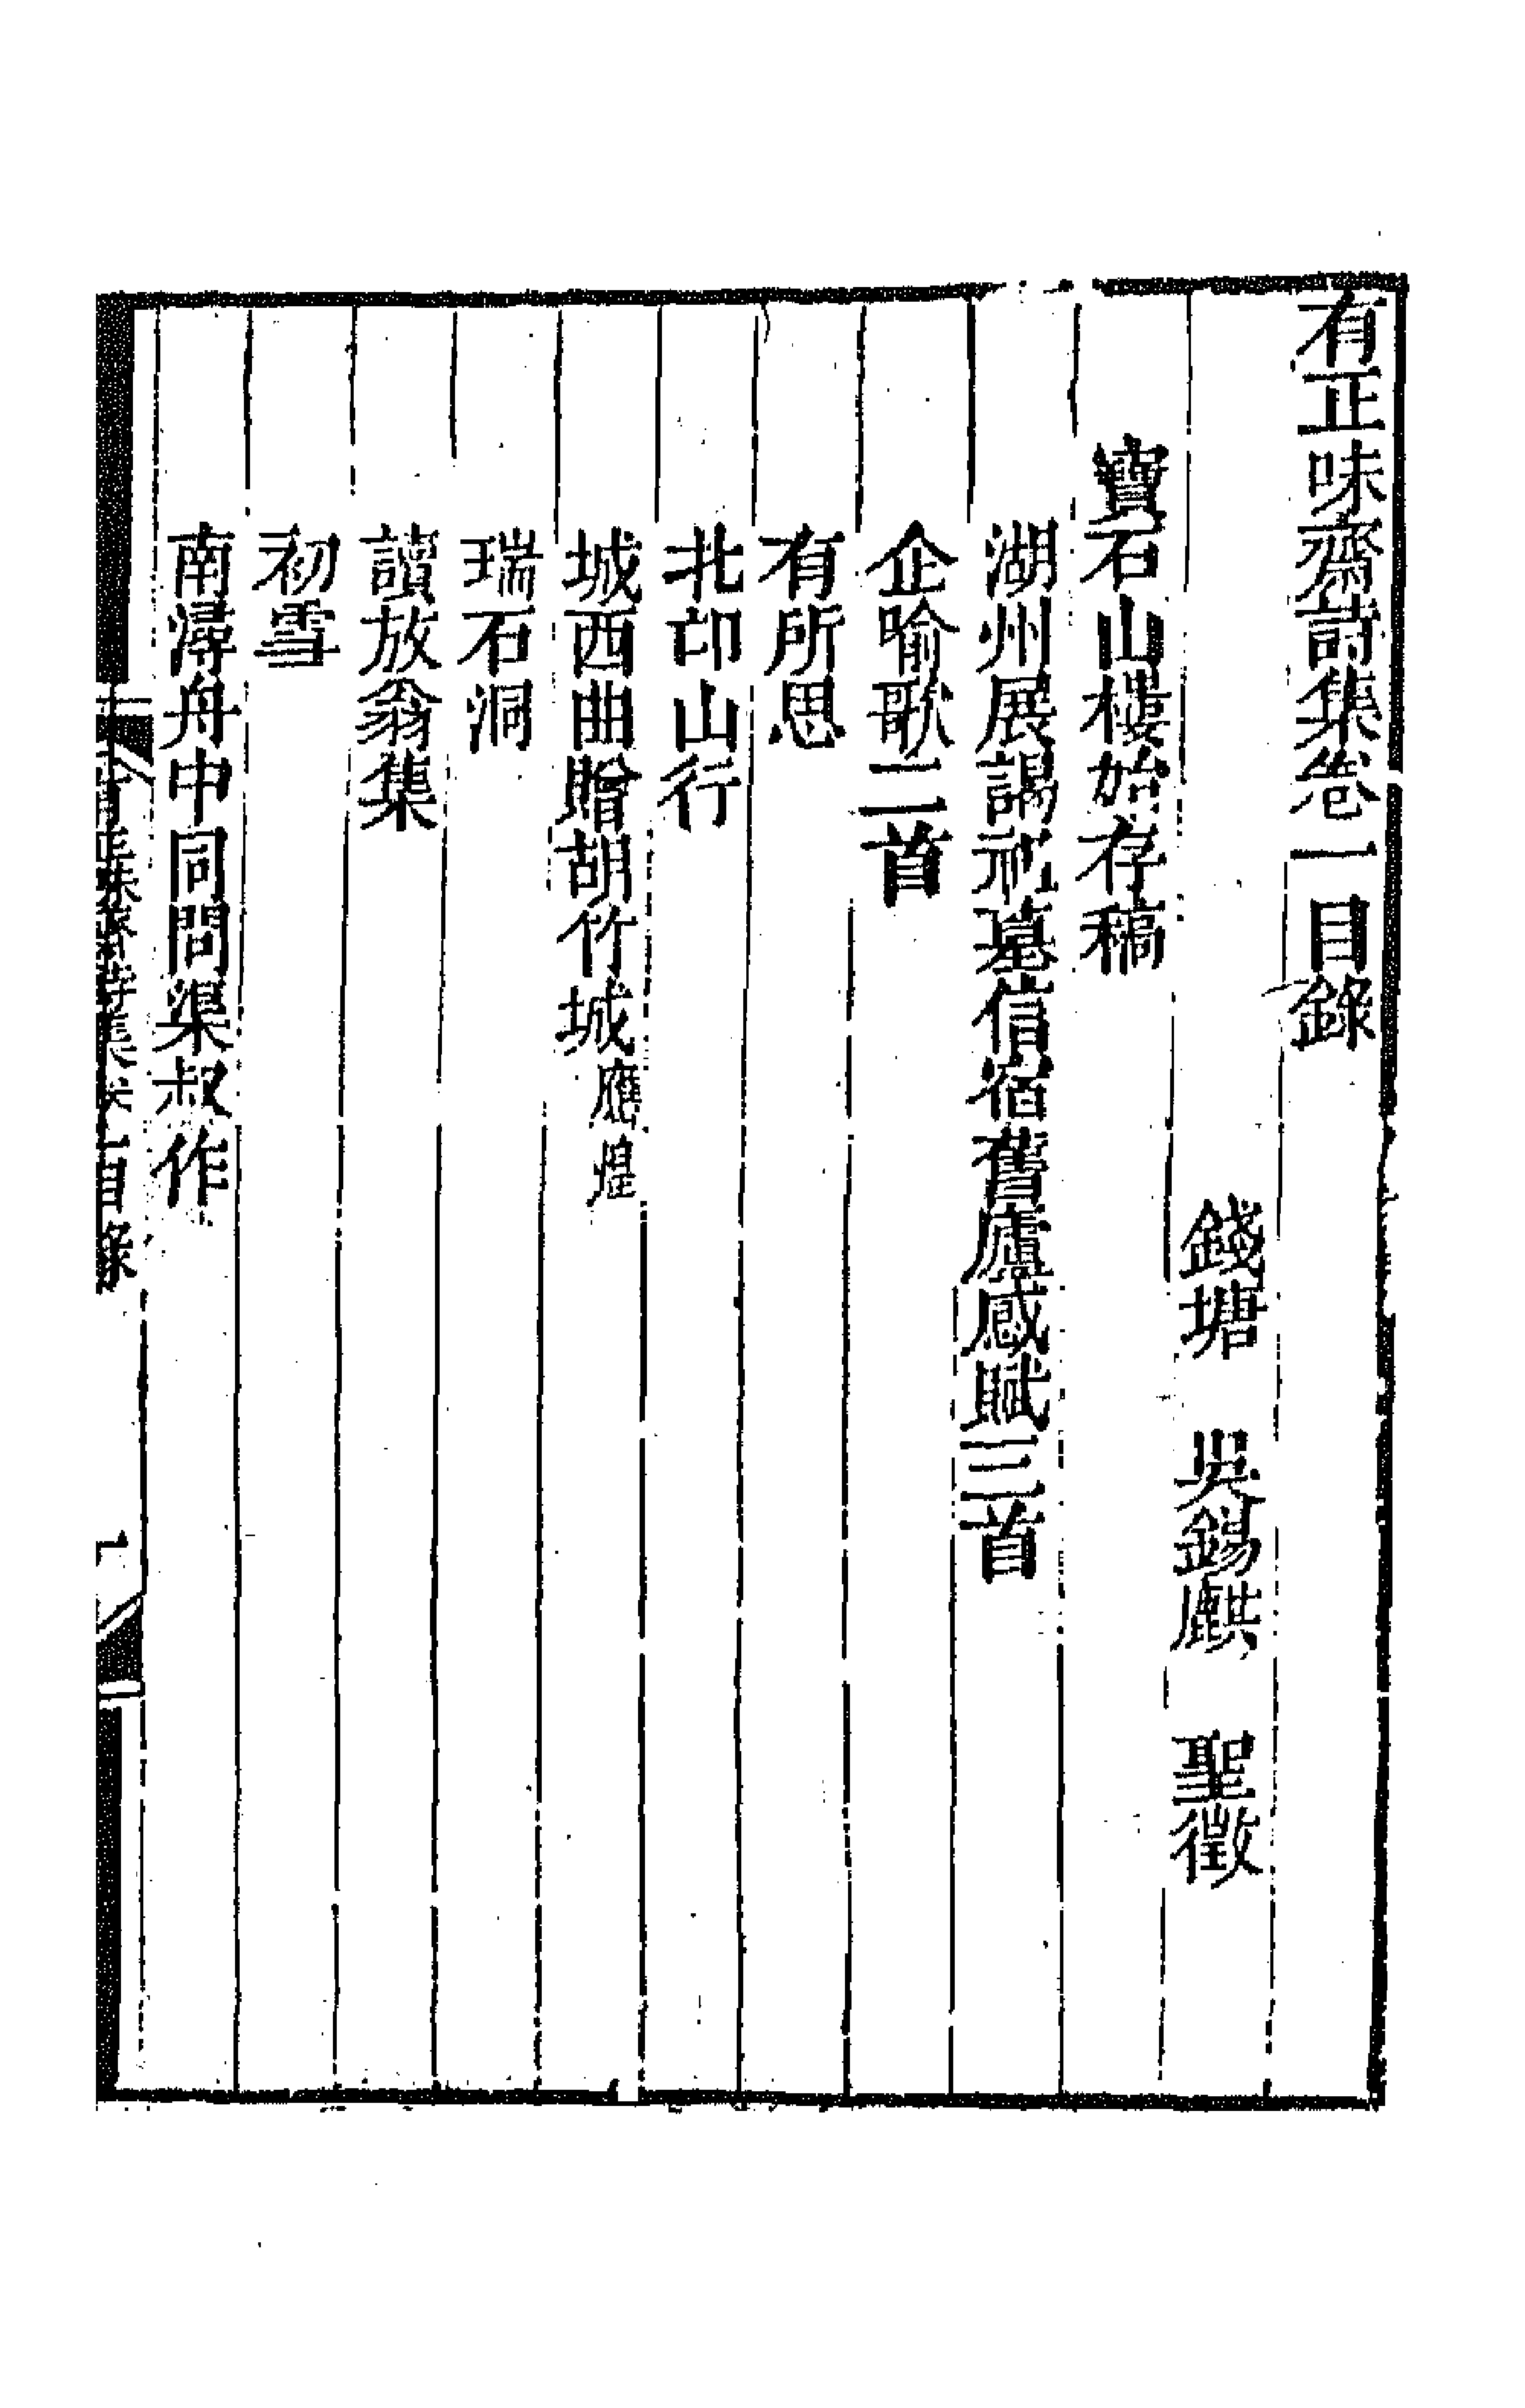 有正味齋詩集卷一目錄
錢塘　吳錫麒　聖徵
寶石山樓始存稿
湖州展謁祖墓信宿舊廬感賦三首
企喻歌二首
有所思
北邙山行
城西曲贈胡竹城應煌
瑞石洞
讀放翁集
初雪
南潯舟中同問渠叔作
有正味齋詩集卷一目錄
一